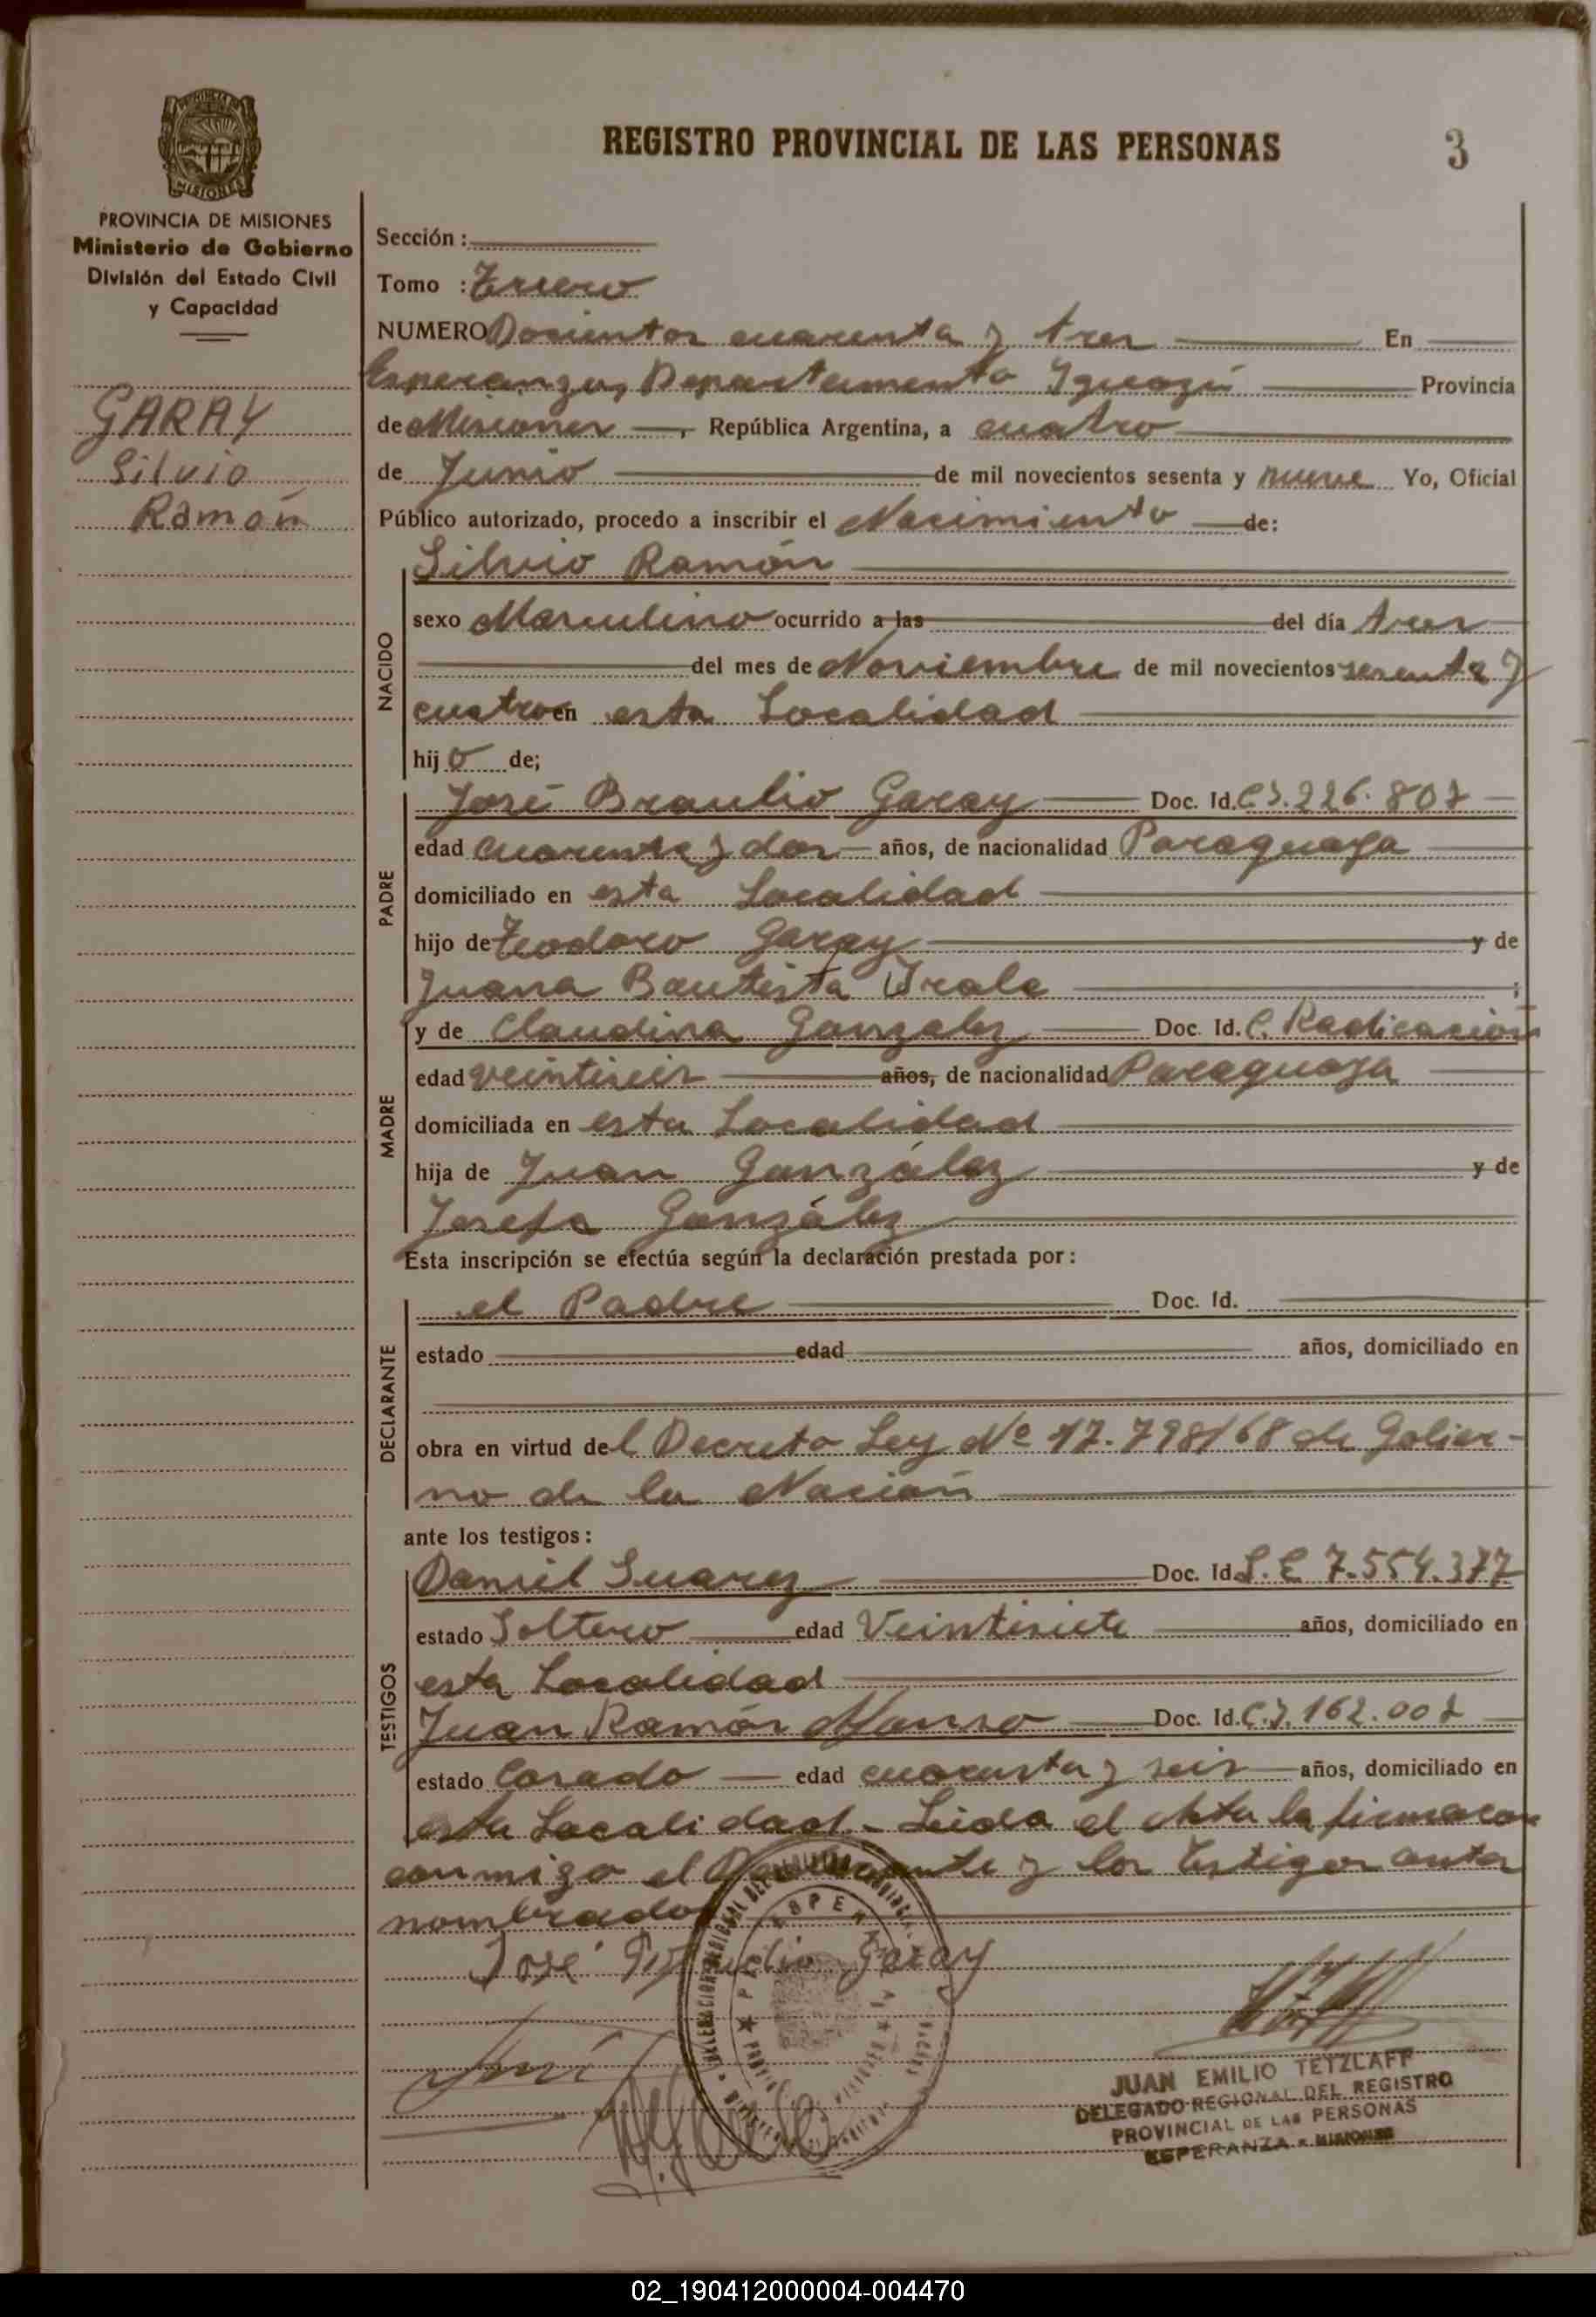 REGISTRO PROVINCIAL DE LAS PERSONAS
3
PROVINCIA DE MISIONES
Ministerio de Gobierno
División del Estado Civil
y Capacidad
GARAY
Silvio
Ramón
Sección :
Tomo : Tercero
NUMERO Docientos cuarenta y tres En
Esperanza, Departamento Iguazú Provincia
de Misiones, República Argentina, a cuatro
de Junio de mil novecientos sesenta y nueve Yo, Oficial
Público autorizado, procedo a inscribir el Nacimiento de:
NACIDO
Silvio Ramón
sexo Masculino ocurrido a las del día tres
del mes de Noviembre de mil novecientos sesenta y
cuatro en esta Localidad
hijo de;
PADRE
José Braulio Garay Doc. Id. C.I. 226.807
edad cuarenta y dos años, de nacionalidad Paraguaya
domiciliado en esta Localidad
hijo de Teodoro Garay y de
Juana Bautista Irala ;
MADRE
y de Claudina Gonzalez Doc. Id. C. Radicación
edad veintiseis años, de nacionalidad Paraguaya
domiciliada en esta Localidad
hija de Juan González y de
Josefa González
Esta inscripción se efectúa según la declaración prestada por :
DECLARANTE
el Padre Doc. Id.
estado edad años, domiciliado en
obra en virtud del Decreto Ley Nº 17.798/68 de Gobier-
no de la Nación
ante los testigos :
TESTIGOS
Daniel Suarez Doc. Id. L.E 7.554.377
estado Soltero edad Veintisiete años, domiciliado en
esta Localidad
Juan Ramón Doc. Id. C.I. 162.007
estado Casado edad cuarenta y seis años, domiciliado en
esta Localidad. - Leida el Acta la firmaron
conmigo el Declarante y los Testigos antes
nombrados
José Braulio Garay
JUAN EMILIO TETZLAFF
DELEGADO REGIONAL DEL REGISTRO
PROVINCIAL DE LAS PERSONAS
ESPERANZA - MISIONES
02_190412000004-004470